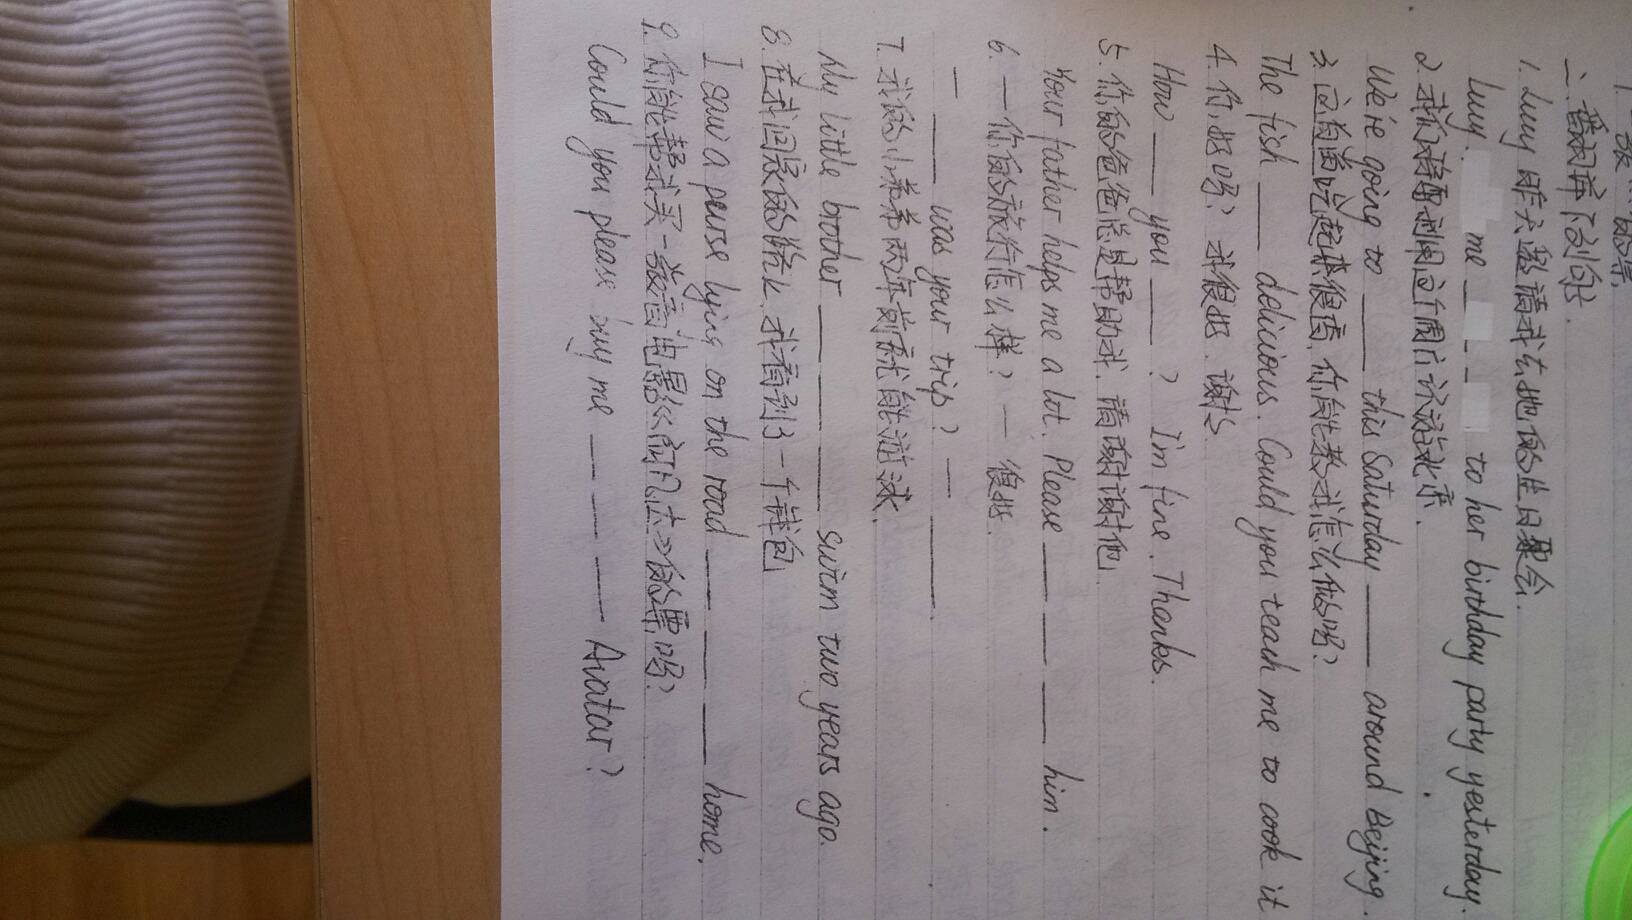 二、翻译下列句子.
1. Lucy 昨天邀请我去她的生日聚会.
Lucy me to her birthday party yesterday.
2. 我们将要利用这个周六游北京.
We're going to ___ this Saturday ___ around Beijing.
3. 这鱼尝起来很香,你能教我怎么做吗?
The fish ___ delicious. Could you teach me to cook it
4. 你好吗? 我很好,谢谢.
How ___ you ___ ? I'm fine. Thanks.
5. 你的爸爸总是帮助我,请谢谢他.
Your father helps me a lot. Please ___ ___ ___ him.
6. 一你的旅行怎么样? 一 很好.
— ___ was your trip? — ___.
7. 我的小弟弟两年前就能游泳.
My little brother ___ ___ ___ swim two years ago.
8. 在我回家的路上,我看到了一个钱包
I saw a purse lying on the road ___ ___ ___ home.
9. 你能帮我买一张看电影《阿凡达》的票吗?
Could you please buy me ___ ___ ___ Avatar?